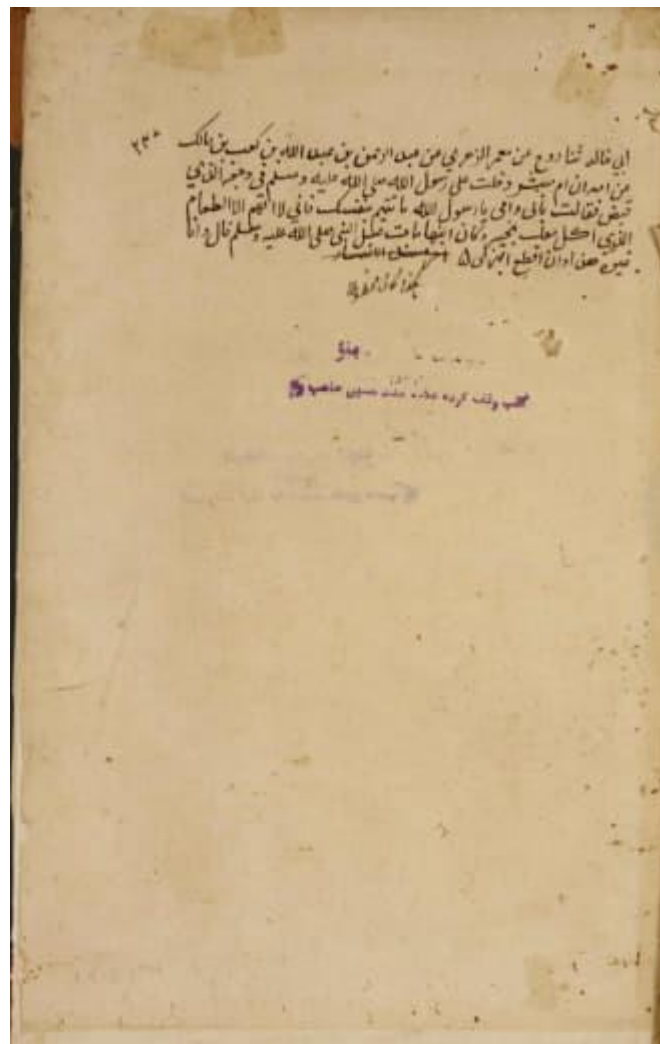 ابي خالد ثنا روح عن معمر الزهري عن عبد الرحمن بن عبد الله بن كعب بن مالك ٢٣٠
عن امه ان ام مبشر دخلت على رسول الله صلى الله عليه وسلم في وجعه الذي
قبض فقالت بابي وامي يا رسول الله ما تتهم بنفسك فاني لا اتهم الا الطعام
الذي اكل معك بخيبر وكان ابنها مات قبل النبي صلى الله عليه وسلم قال وانا
هذا اوان اقطع
هكذا كان
وقف كرده صاحب